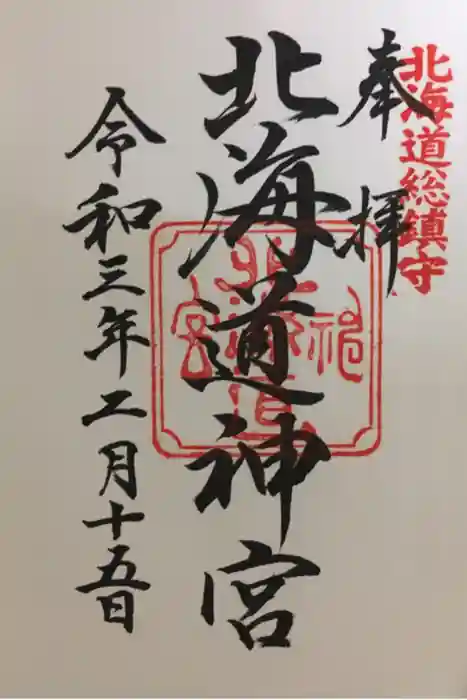 北海道総鎮守
奉拝
北海道神宮
令和三年二月十五日